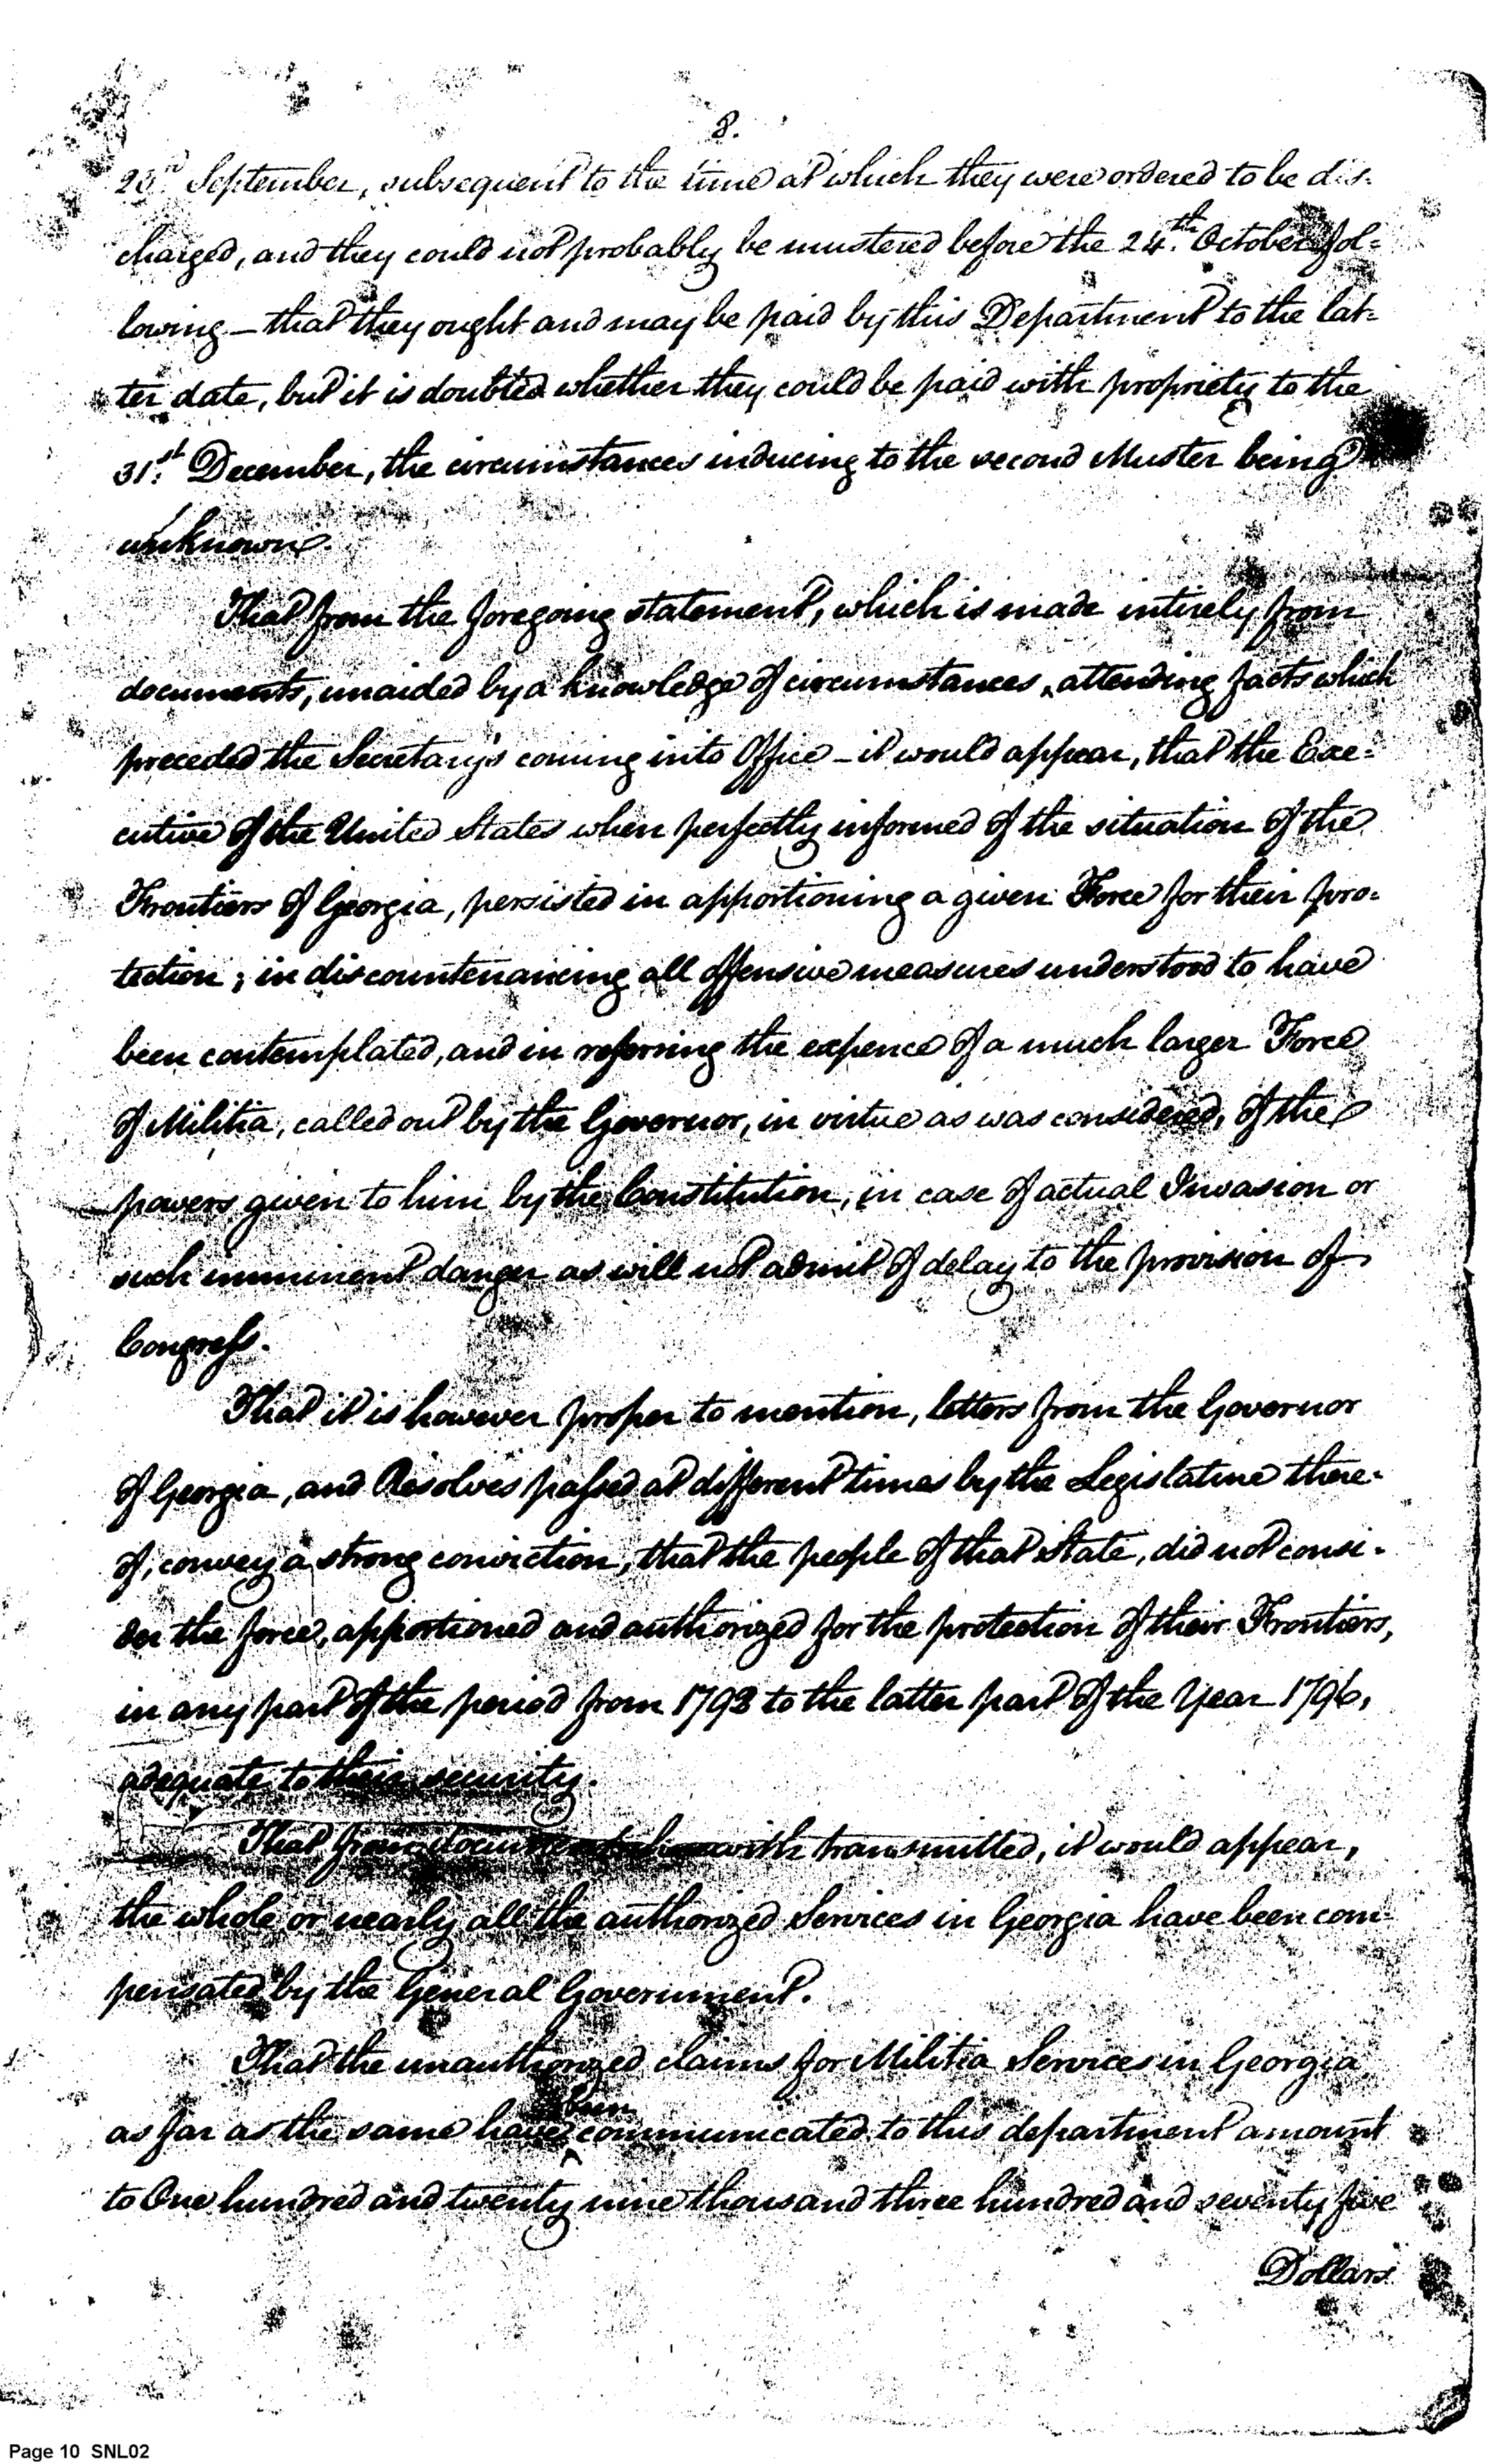 8.
23.d September, subsequent to the time at which they were ordered to be dis-
charged, and they could not probably be mustered before the 24.th October fol-
lowing – that they ought and may be paid by this Department to the lat-
ter date, but it is doubted whether they could be paid with propriety to the
31.st December, the circumstances inducing to the second Muster being
unknown.
That from the foregoing statement, which is made intirely from
documents, unaided by a knowledge of circumstances, attending facts which
preceded the Secretary's coming into Office – it would appear, that the Exe-
cutive of the United States when perfectly informed of the situation of the
Frontiers of Georgia, persisted in apportioning a given Force for their pro-
tection; in discountenancing all offensive measures understood to have
been contemplated, and in referring the expence of a much larger Force
of Militia, called out by the Governor, in virtue as was considered, of the
powers given to him by the Constitution, in case of actual Invasion or
such imminent danger as will not admit of delay to the provision of
Congress.
That it is however proper to mention, letters from the Governor
of Georgia, and Resolves passed at different times by the Legislature there-
of, convey a strong conviction, that the people of that State, did not consi-
der the force, apportioned and authorized for the protection of their Frontiers,
in any part of the period from 1793 to the latter part of the Year 1796,
adequate to their security.
That from documents herewith transmitted, it would appear,
the whole or nearly all the authorized Services in Georgia have been com-
pensated by the General Government.
That the unauthorized claims for Militia Services in Georgia
as far as the same have been communicated to this department amount
to One hundred and twenty nine thousand three hundred and seventy five
Dollars
Page 10 SNL02